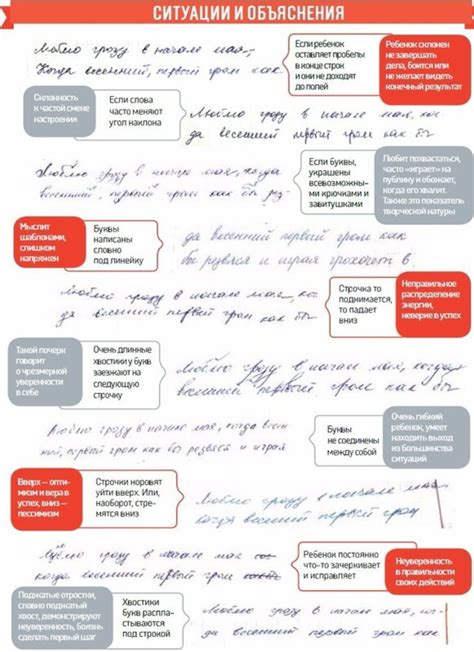 СИТУАЦИИ И ОБЪЯСНЕНИЯ
Люблю грозу в начале мая,
Когда весенний, первый гром как
Если ребенок
оставляет пробелы
в конце строк
и они не доходят
до полей
Ребенок склонен
не завершать
дела, боится или
не желает видеть
конечный результат
Склонность
к частой смене
настроения
Если слова
часто меняют
угол наклона
Люблю грозу в начале мая, ког-
да весенний первый гром как бы
Люблю грозу в начале мая, когда
весенний, первый гром как бы рез-
Если буквы,
украшены
всевозможны-
ми крючками и
завитушками
Любит похвастаться,
часто «играет» на
публику и обожает,
когда его хвалит.
Также это показатель
творческой натуры
Мыслит
шаблонами,
слишком
напряжен
Буквы
написаны
словно
под линейку
да весенний первый гром как
бы резвяся и играя грохочет в
Люблю грозу в начале мая, ког-
да весенний первый гром как бы
Строчка то
поднимается,
то падает
вниз
Неправильное
распределение
энергии,
неверие в успех
Такой почерк
говорит
о чрезмерной
уверенности
в себе
Очень длинные
хвостики у букв
заезжают на
следующую
строчку
Люблю грозу в начале мая, когда
весенний первый гром как бы
Люблю грозу в начале мая, когда весен
ний, первый гром как бы резвяся и играя
Буквы
не соединены
между собой
Очень гибкий
ребенок, умеет
находить выход
из большинства
ситуаций
Вверх — опти-
мизм и вера в
успех, вниз —
пессимизм
Строчки норовят
уйти вверх. Или,
наоборот, стре-
мятся вниз
Люблю грозу в начале мая
когда весенний первый гром
Люблю грозу в начале мая
когда весенний, первый гром как
Ребенок постоянно
что-то зачеркивает
и исправляет
Неуверенность
в правильности
своих действий
Поджатые отростки,
словно поджатый
хвост, демонстрируют
неуверенность, боязнь
сделать первый шаг
Хвостики
букв распла-
стываются
под строкой
Люблю грозу в начале мая, ког-
да весенний первый гром как